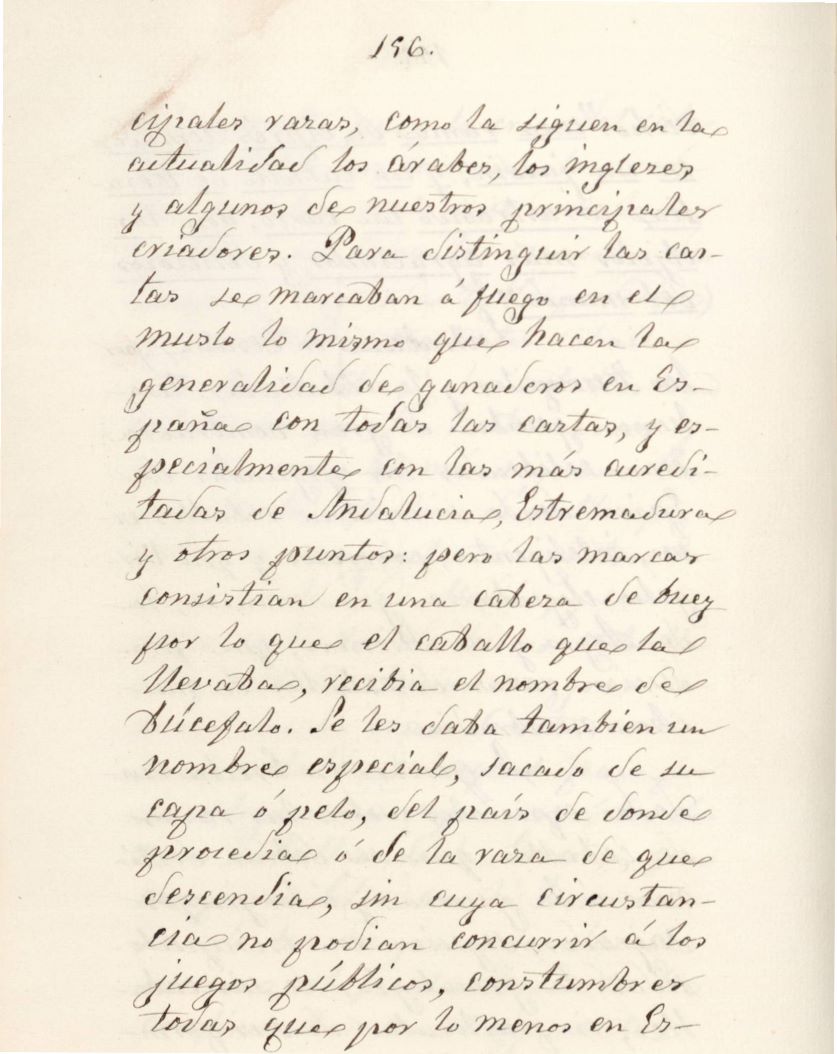 156.
cipales razas, como la siguen en la
actualidad los árabes, los ingleses
y algunos de nuestros principales
criadores. Para distinguir las cas-
tas se marcaban á fuego en el
muslo lo mismo que hacen la
generalidad de ganaderos en Es-
paña con todas las castas, y es-
pecialmente con las más acredi-
tadas de Andalucia, Estremadura
y otros puntos: pero las marcas
consistian en una cabeza de buey
por lo que el caballo que la
llevaba, recibia el nombre de
búcefalo. Se les daba tambien un
nombre especial, sacado de su
capa ó pelo, del país de donde
procedia ó de la raza de que
descendia, sin cuya circustan-
cia no podian concurrir á los
juegos públicos, constumbres
todas que por lo menos en Es-